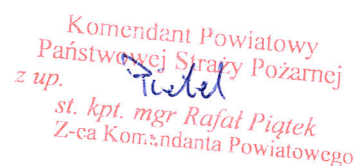 Komendant Powiatowy
Państwowej Straży Pożarnej
z up.
st. kpt. mgr Rafał Piątek
Z-ca Komendanta Powiatowego